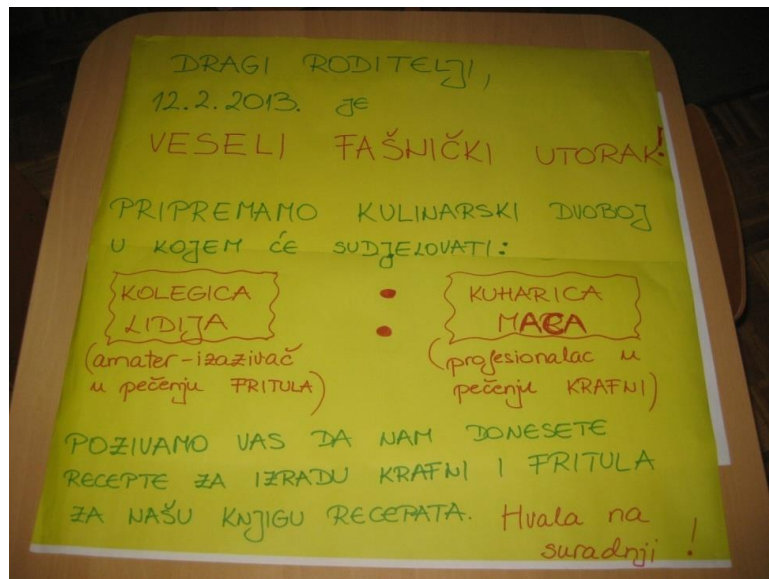 DRAGI RODITELJI,
12.2.2013. JE
VESELI FAŠNIČKI UTORAK!
PRIPREMAMO KULINARSKI DVOBOJ
U KOJEM ĆE SUDJELOVATI:
KOLEGICA
LIDIJA
(amater-izazivač
u pečenju FRITULA)
:
KUHARICA
MACA
(profesionalac u
pečenju KRAFNI)
POZIVAMO VAS DA NAM DONESETE
RECEPTE ZA IZRADU KRAFNI I FRITULA
ZA NAŠU KNJIGU RECEPATA. Hvala na
suradnji!